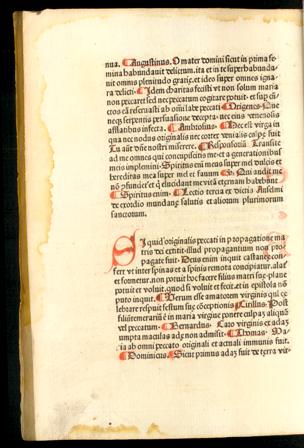 nua. Augustinus. O mater domini sicut in prima fe
mina habundauit delicum. ita et in te superhabunda
uit omnis plenitudo gratie. et ideo super omnes igna
ra delicti. Idem charitas fecisti vt non solum maria
non peccaret sed nec peccatum cogitare potuit. et
eius ea reseruasti ab omni labe peccati Origenes. Que
neq3 serpentis persuasione decepta. nec eius venenosis
afflatibus infecta. Ambrosius. Hec est virga in
qua nec nodus originalis nec cortex venialis culpe fuit
Tu autem domine nostri miserere. Responsoriū Transite
ad me omnes qui concupiscitis me. et a generationibus
meis implemini. Spiritus enim meus super mel dulcis et
hereditas mea super mel et fauum. Qui audit me
nō et q̄ elucidant me vitā eternam habebunt
Spiritus enim. Lectio tercia ex dictis Anselmi
de exordio mundane salutis et aliorum plurimorum
sanctorum.
Si quid originalis peccati in propagatione ma
tris dei extitit. illud propagantium non pro
pagate fuit. Deus enim inquit castanee con
fert vt inter spinas et a spinis remota concipiatur. alatur
et foueatur. non potuit hoc facere filius matri sue. plane
potuit et voluit. quod si voluit et fecit. et in epistola nō
puto inquit. Verum esse amatorem virginis qui ce
lebrare respuit festum sue cōceptionis Cirillus. Post
filiū temerariū ē in maria virgine ponere culpaz aliquā
vel peccatum. Bernardus. Caro virginis ex adaz
sumpta maculas ade non admisit. Thomas. Ma
ria ab omni peccato originali et actuali immunis fuit.
Dominicus. Sicut primus adaz fuit de terra vir